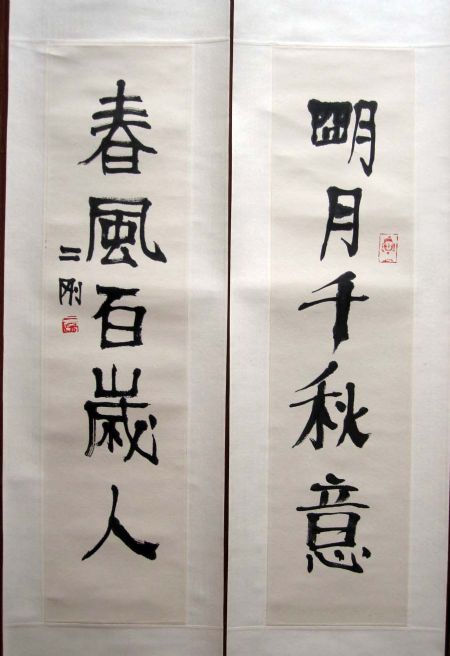 明月千秋意
春風百歲人
二剛